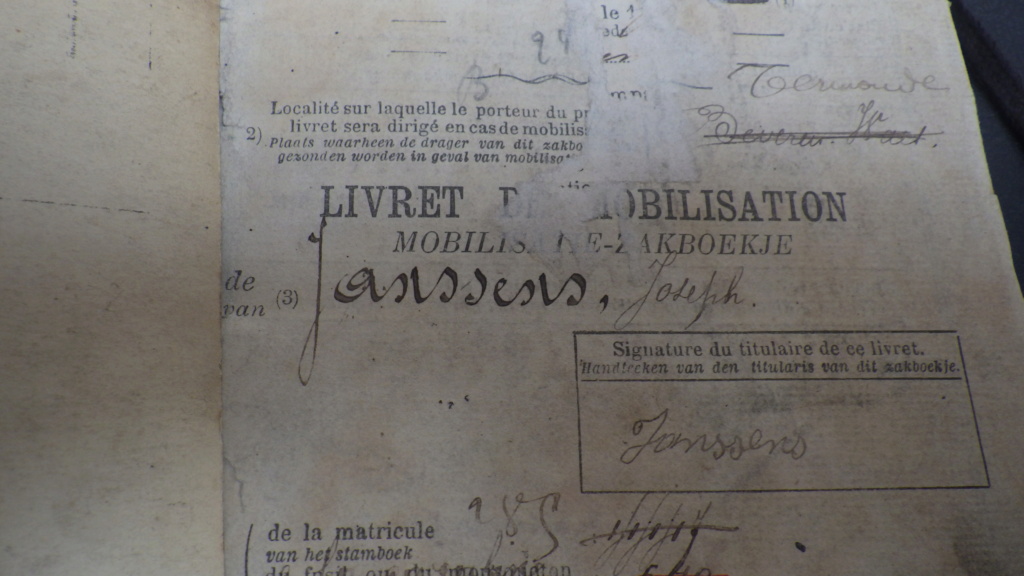 le 1
94
Termonde
Localité sur laquelle le porteur du
livret sera dirigé en cas de mobilis
2)
Plaats waarheen de drager van dit zakbo
gezonden worden in geval van mobilisa
LIVRET D MOBILISATION
MOBILIS IE-ZAKBOEKJE
de
van (3) Janssens, Joseph.
Signature du titulaire de ce livret.
Handteeken van den titularis van dit zakboekje.
Janssens
de la matricule
van het stamboek